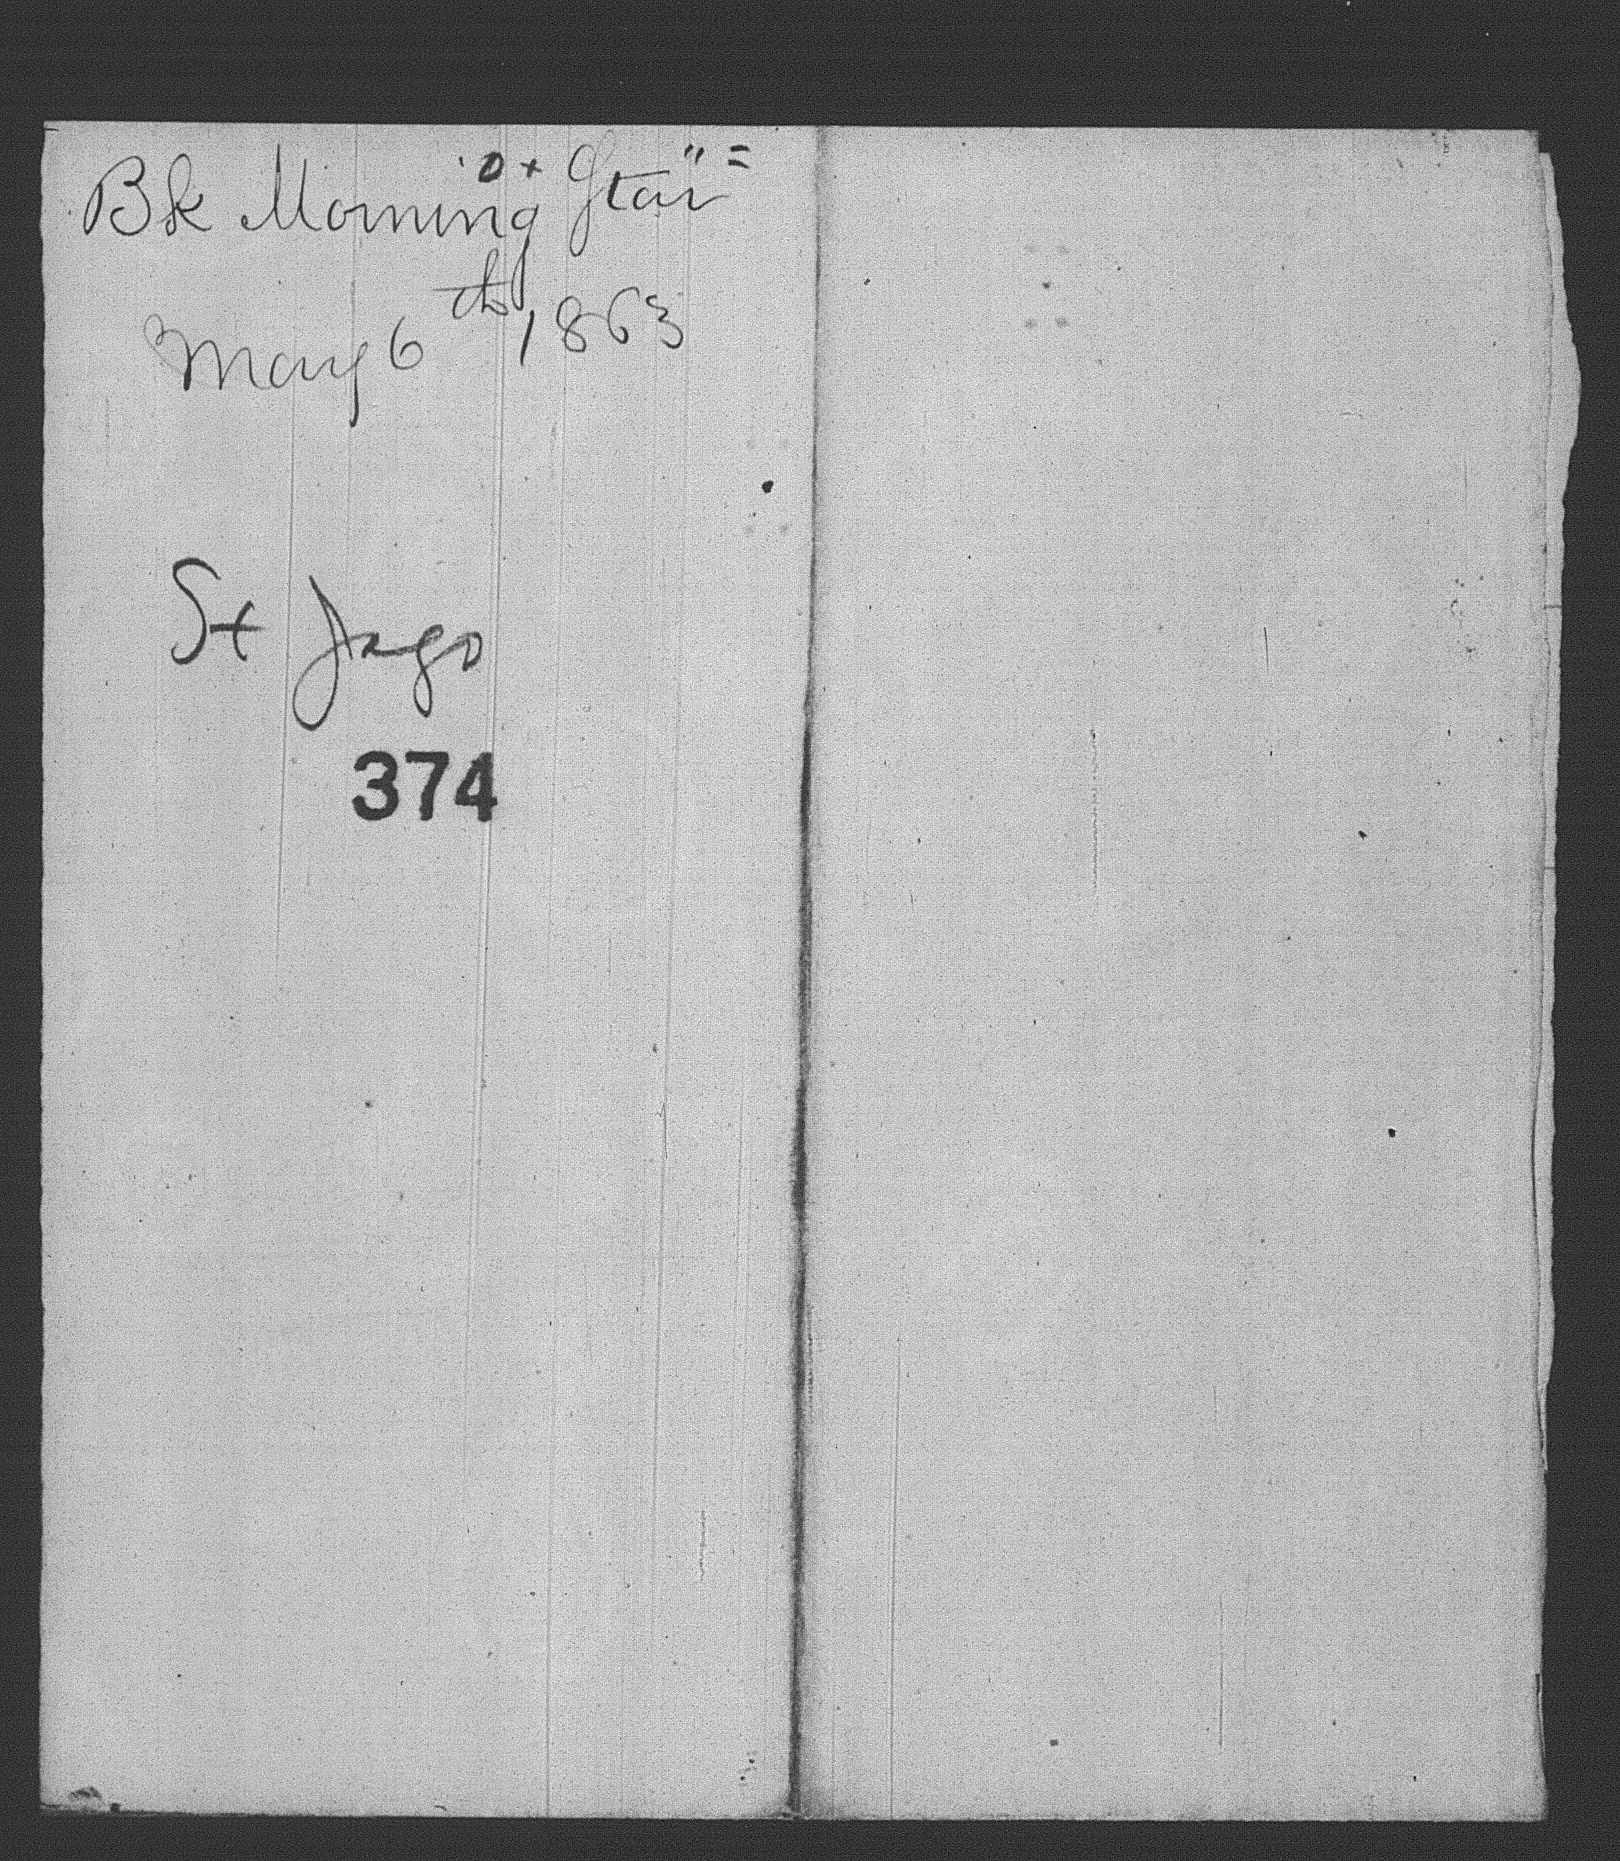 Bk Morning Star" =
May 6th 1863
St Jago
374